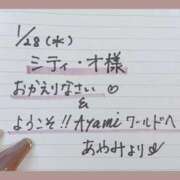 1/28(水)
シティ・オ様
おかえりなさい♡
&
ようこそ!!Ayamiワールドへ
あやみより